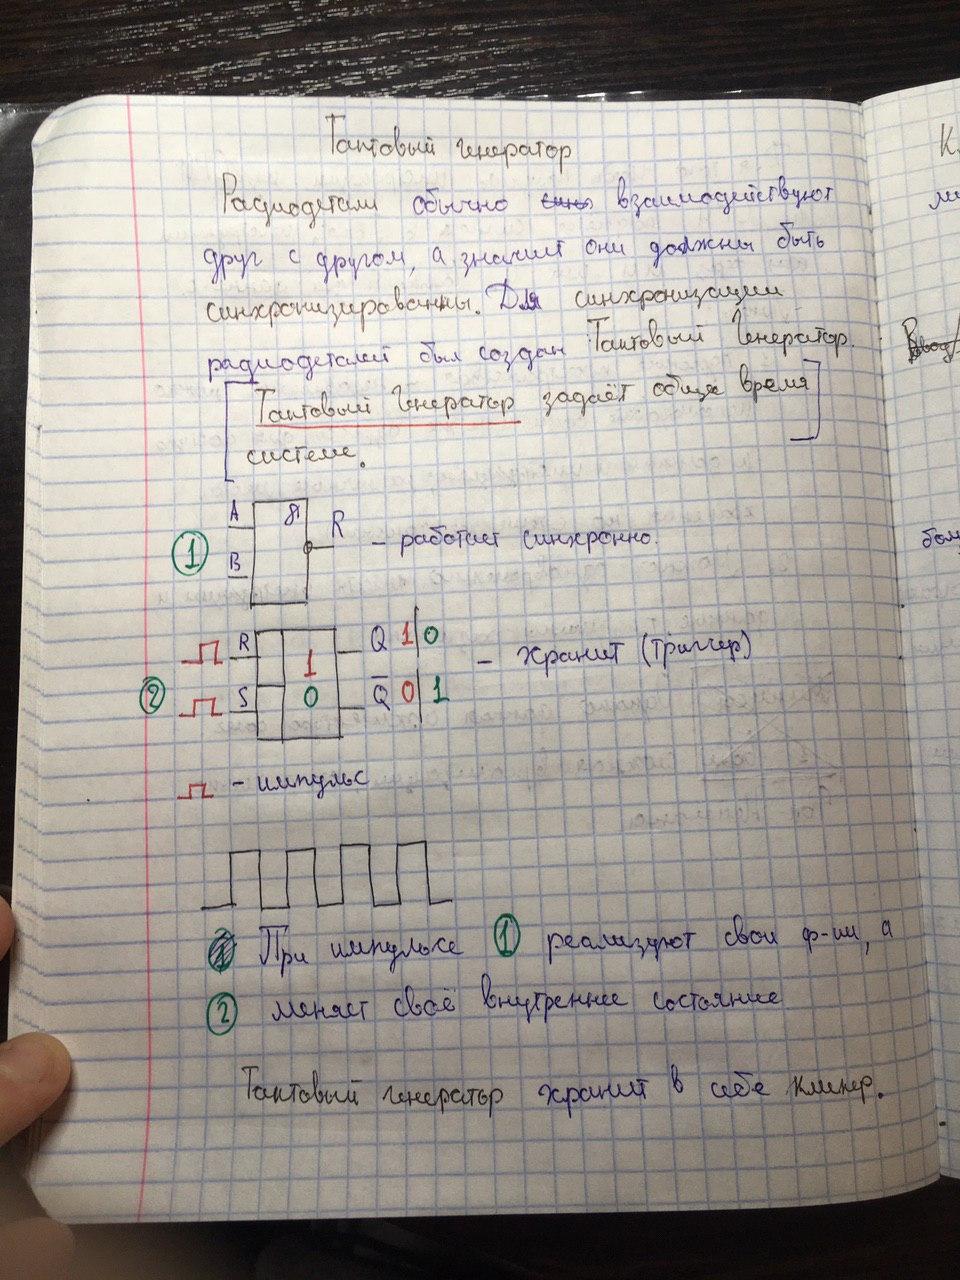 Тактовый Генератор
Радиодетали обычно взаимодействуют
друг с другом, а значит они должны быть
синхронизированны. Для синхронизации
радиодеталей был создан Тактовый Генератор.
Тактовый Генератор задаёт общее время
системе.
A
&
R
B
1
- работает синхронно.
R
1
Q 1 0
- хранит (триггер)
2
S
0
Q̅ 0 1
- импульс
При импульсе 1 реализуют свои ф-ии, а
2 меняет своё внутреннее состояние
Тактовый генератор хранит в себе клинер.
К
Ввод